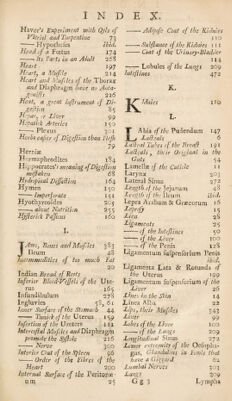 INDEX.
Haver's Experiment with Oyls of
Vitriol and Turpentine 73
— Hypothesis ibid.
Head of a Foetus 174
— its Parts in an Adult 288
Heart 197
Heart, a Muscle 214
Heart and Muscles of the Thorax
and Diaphragm have no
226
Heat, a great Instrument of Di-
gestion 85
Hepar, or Liver 99
Hepatick Arteries 150
— Plexus 301
of Digestion than
79
Herniae
Hermaphrodites 184
Hippocrates's meaning of Digestion
mistaken 68
Hydropical Disposition 164
Hymen 150
— Imperforate 151
Hyothyroides 205
— about Nutrition 255
Hysterick Passions 160
I.
Jaws, Bones and Muscles 383
Ileum 48
Incommodities of too much Fat
20
Indian Bread of Roots
Inferior Blood-Vessels of the Ute-
rus 165
Infundibulum 278
Ingluvies 58, 62
Inner Surface of the Stomach 44
— Tunick of the Uterus 135
Insertion of the Ureters 111
Intercostal Muscles and Diaphragm
promote the 216
— Nerve 300
Interior Coat of the Spleen 96
— Order of the Fibres of the
Heart 200
Internal Surface of the Peritone-
um 25
— Adipose Coat of the Kidnies
110
— Substance of the Kidnies 111
— Coat of the Urinary-Bladder
114
— Lobules of the Lungs 209
Intestines 472
K.
Kidnies 110
L.
Labia of the Pudendum 147
Lacteals 6
Lacteal Tubes of the Breast 191
Lacteals, their Original in the
Guts 54
Lamellae of the Cuticle 11
Larynx 203
Lateral Sinus 272
Length of the Jejunum 48
Length of the Ileum ibid.
Lepra Arabum & Graecorum 16
Leprosy 15
Lien 28
Ligaments 25
— of the Intestines 50
— of the Liver 100
— of the Penis 158
Ligamentum suspensorium Penis
128
Ligamenta Lata & Rotunda of
the Uterus 199
Ligamentum suspensorium of the
Liver 26
Lines in the Skin 14
Linea Alba 24
Lips, their Muscles 343
Liver 99
Lobes of the Liver 100
— of the Lungs 209
Longitudinal Sinus 272
Lower extremity of the Oesopha-
gus, Glandulous in Fowls that
have a Gizzard 62
Lumbal Nerves 301
Lungs 207
Gg 3 Lympha